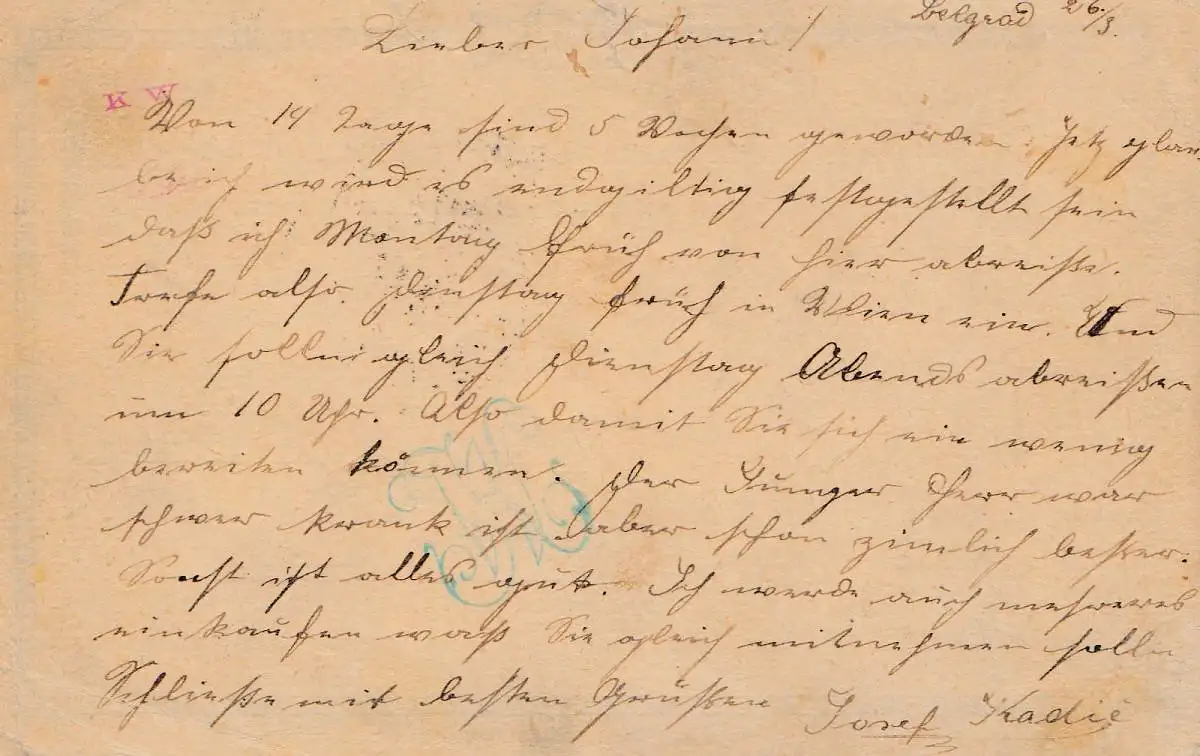 Belgrad 26/3.
Lieber Johann!
K W
Von 14 Tage sind 5 Wochen geworden. Jetz glau
be ich wird es endgiltig festgestellt sein
daß ich Montag früh von hier abreiße.
Trefe also Dienstag früh in Wien ein. Und
Sie sollen gleich Dienstag Abends abreißen
um 10 Uhr. Also damit Sie sich ein wenig
bereiten können. Der Junger Herr war
schwer krank ist aber schon zimlich besser.
Sonst ist alles gut. Ich werde auch mehreres
einkaufen waß Sie gleich mitnehmen solln
Schließe mit besten Grüßen Josef Kadić